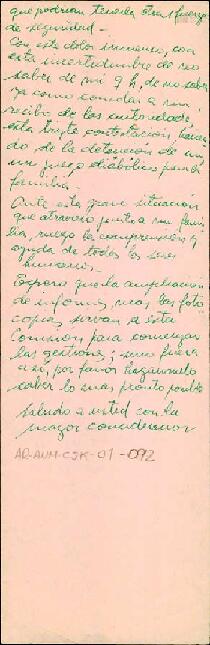 que podrían tenerla otras fuerzas
de seguridad.-
Con este dolor inmenso, con
esta incertidumbre de no
saber de mi q h, de no saber
ya como consolar a mi
recibo de las autoridades,
esta triste contestación hacen-
do de la detención de un
un juego diabólico para la
familia.-
Ante esta grave situación
que atravieso junto a mi fami-
lia, ruego la comprensión y
ayuda de todos los seres
humanos.-
Espero que la ampliación
de informe, mas las foto-
copias, sirvan a esta
Comisión para comenzar
las gestiones; si no fuera
así, por favor háganmelo
saber lo mas pronto posible
Saludo a usted con la
mayor consideración
AR-ANM-CJK-01-092